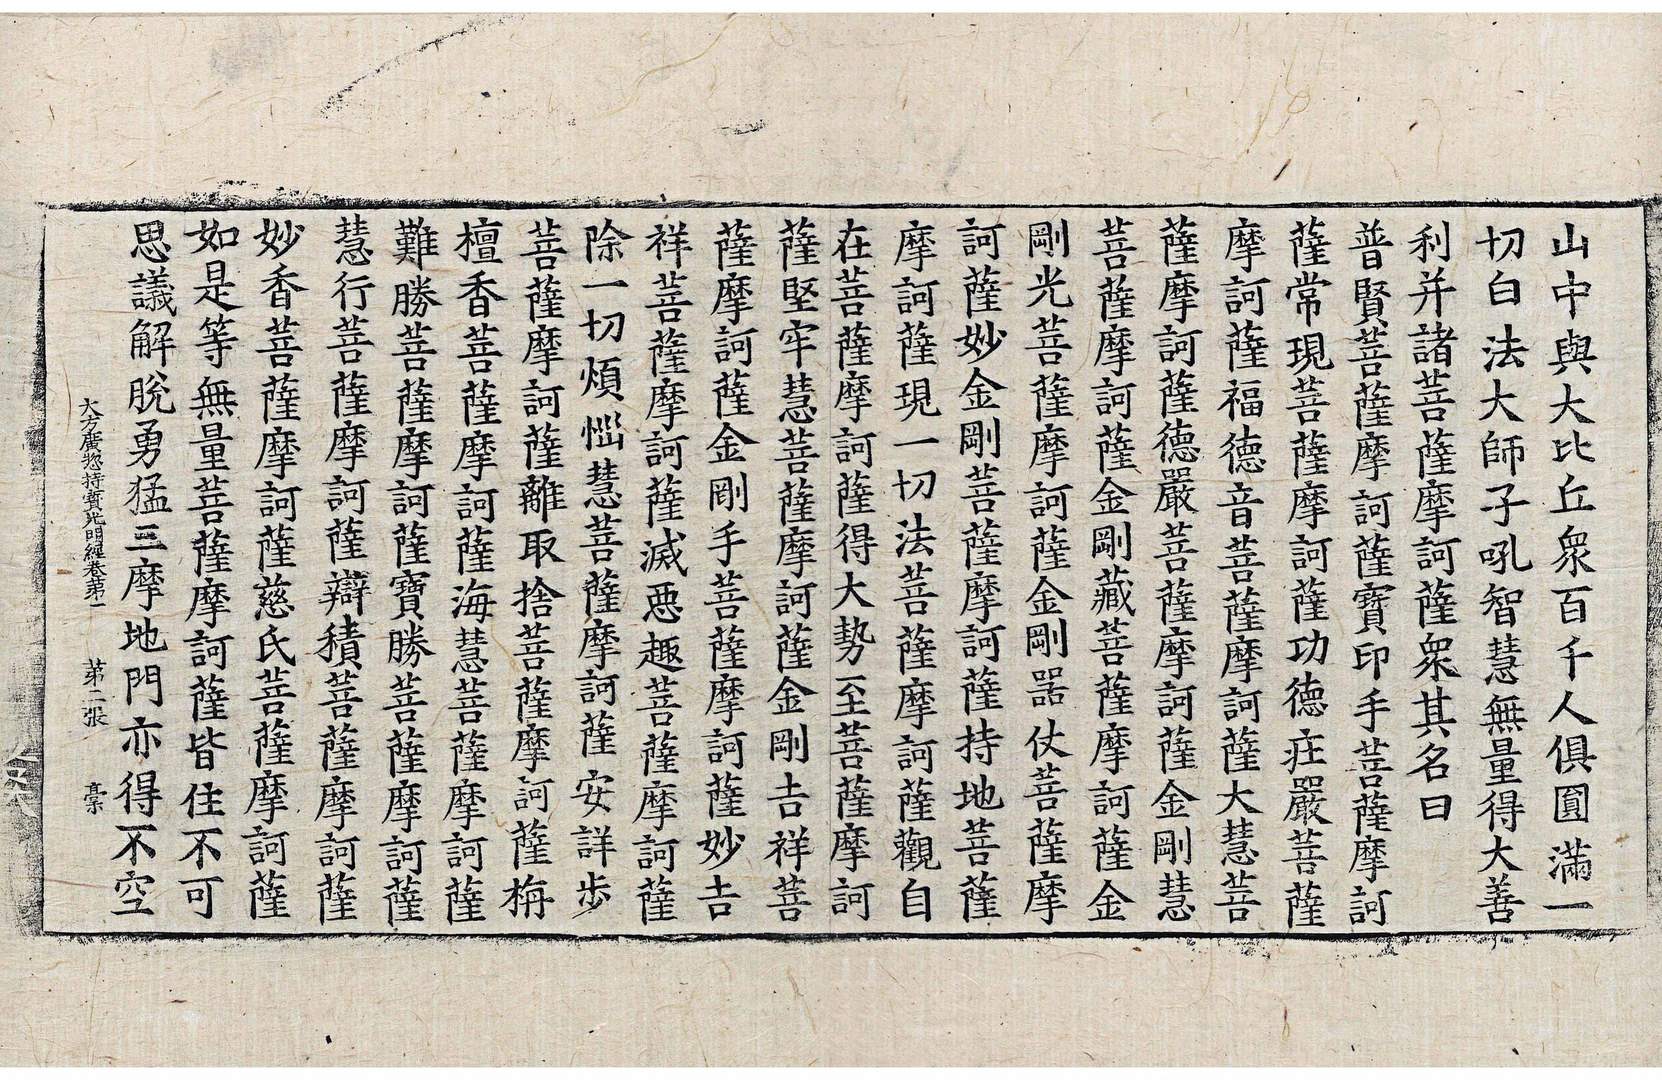 山中與大比丘衆百千人俱圓滿一
切白法大師子吼智慧無量得大善
利并諸菩薩摩訶薩衆其名曰
普賢菩薩摩訶薩寶印手菩薩摩訶
薩常現菩薩摩訶薩功德莊嚴菩薩
摩訶薩福德音菩薩摩訶薩大慧菩
薩摩訶薩德嚴菩薩摩訶薩金剛慧
菩薩摩訶薩金剛藏菩薩摩訶薩金
剛光菩薩摩訶薩金剛器仗菩薩摩
訶薩妙金剛菩薩摩訶薩持地菩薩
摩訶薩現一切法菩薩摩訶薩觀自
在菩薩摩訶薩得大勢至菩薩摩訶
薩堅牢慧菩薩摩訶薩金剛吉祥菩
薩摩訶薩金剛手菩薩摩訶薩妙吉
祥菩薩摩訶薩滅惡趣菩薩摩訶薩
除一切煩惱慧菩薩摩訶薩安詳步
菩薩摩訶薩離取捨菩薩摩訶薩栴
檀香菩薩摩訶薩海慧菩薩摩訶薩
難勝菩薩摩訶薩寶勝菩薩摩訶薩
慧行菩薩摩訶薩辯積菩薩摩訶薩
妙香菩薩摩訶薩慈氏菩薩摩訶薩
如是等無量菩薩摩訶薩皆住不可
思議解脫勇猛三摩地門亦得不空
大方廣揔持寶光明經卷第一 第二張 槀